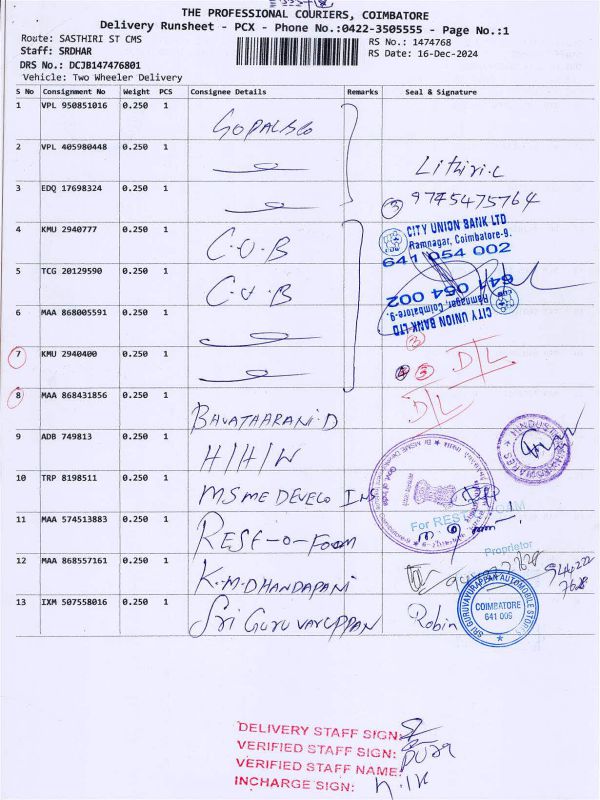 THE PROFESSIONAL COURIERS, COIMBATORE
Delivery Runsheet - PCX - Phone No.:0422-3505555 - Page No.:1
Route: SASTHIRI ST CMS
RS No.: 1474768
Staff: SRDHAR
RS Date: 16-Dec-2024
DRS No.: DCJB147476801
Vehicle: Two Wheeler Delivery
S No Consignment No Weight PCS Consignee Details Remarks Seal & Signature
1 VPL 950851016 0.250 1
2 VPL 405980448 0.250 1
3 EDQ 17698324 0.250 1 ③ 9745475764
4 KMU 2940777 0.250 1 C.U.B
CITY UNION BANK LTD
Ramnagar, Coimbatore-9.
641 054 002
5 TCG 20129590 0.250 1 C.U.B
641 054 002
Ramnagar, Coimbatore-9.
CITY UNION BANK LTD
6 MAA 868005591 0.250 1
7 KMU 2940400 0.250 1 D/L
8 MAA 868431856 0.250 1 BHAVATAARANI.D D/L
9 ADB 749813 0.250 1 H/H/W
10 TRP 8198511 0.250 1 MSME DEVELO INS
11 MAA 574513883 0.250 1 REST-O-FOAM
For REST-O-FOAM
Proprietor
12 MAA 868557161 0.250 1 K.M.DHANDAPANI
13 IXM 507558016 0.250 1 Sri GURUVAYURPPAN Robin
SRI GURUVAYURAPPAN AUTOMOBILE STORES
COIMBATORE
641 009
DELIVERY STAFF SIGN:
VERIFIED STAFF SIGN:
VERIFIED STAFF NAME:
INCHARGE SIGN: